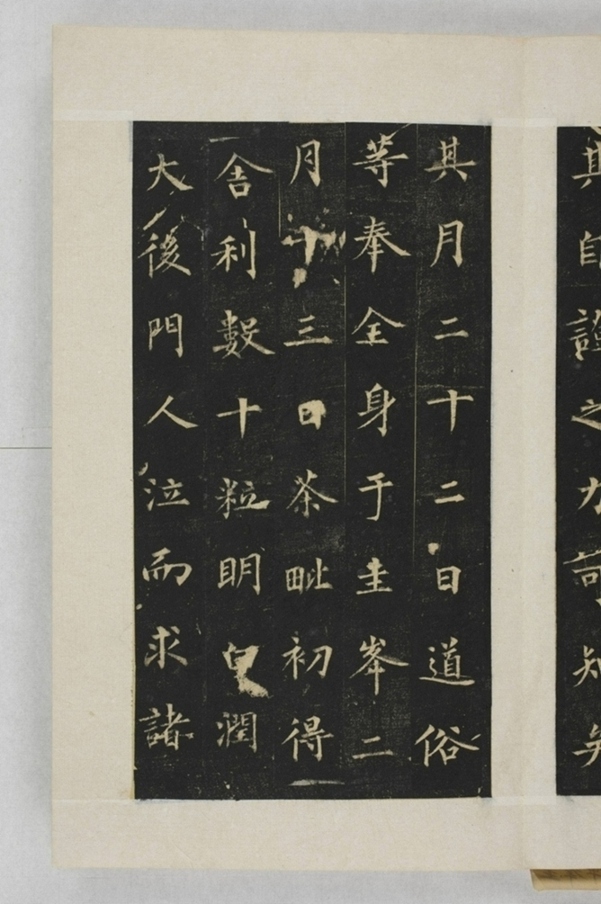 其自證之力可知矣
其月二十二日道俗
等奉全身于圭峯二
月十三日茶毗初得
舍利數十粒明白潤
大後門人泣而求諸